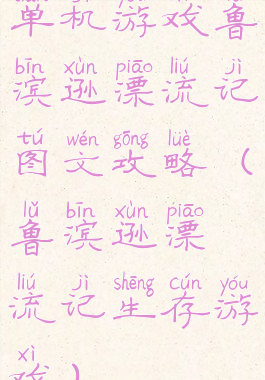 单机游戏鲁
bīn xùn piāo liú jì
滨逊漂流记
tú wén gōng lüè
图文攻略(
lǔ bīn xùn piāo
鲁滨逊漂
liú jì shēng cún yóu
流记生存游
xì
戏)